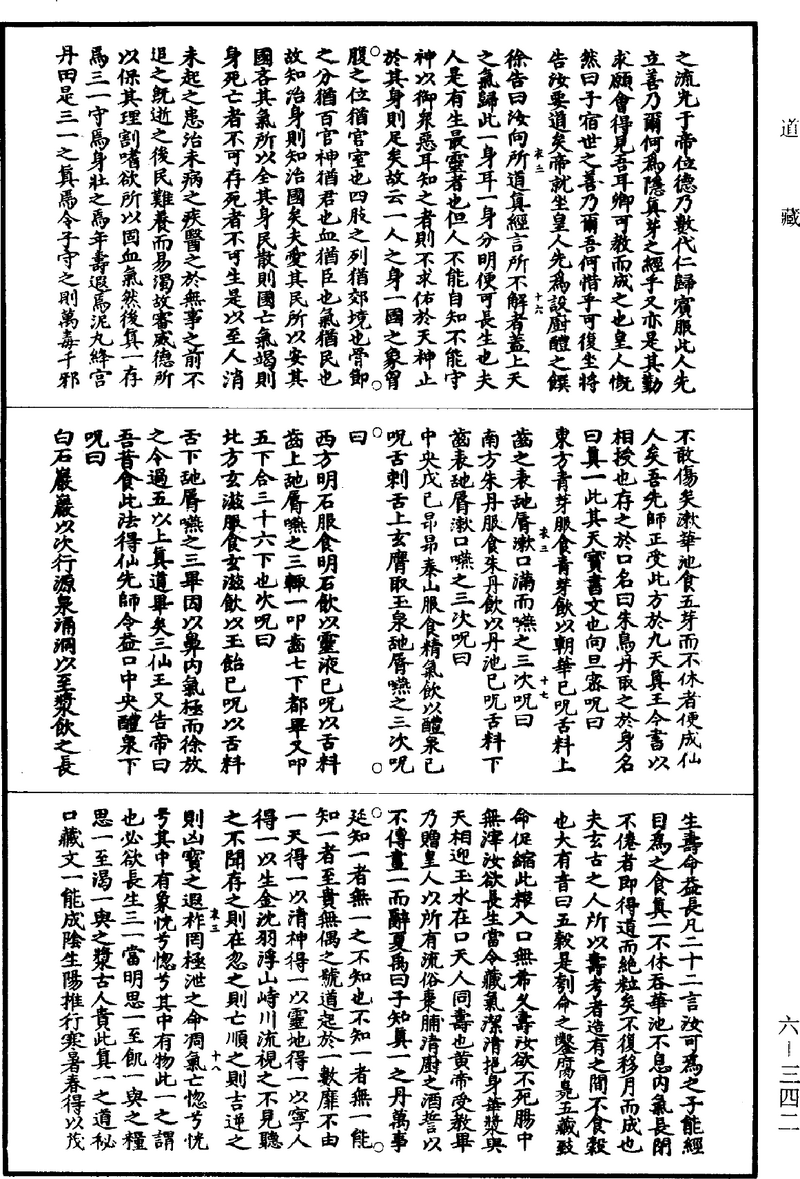 之流先于帝位德乃數代仁歸賓服此人先
立善乃爾何為隱真芽之經乎又亦是其勤
求願會得見吾耳卿可教而成之也皇人慨
然曰子宿世之善乃爾吾何惜乎可復坐將
告汝要道矣帝就坐皇人先為設廚醴之饌
衣三
十六
徐告曰汝向所道真經言所不解者蓋上天
之氣歸此一身耳一身分明便可長生也夫
人是有生最靈者也但人不能自知不能守
神以御衆惡耳知之者則不求佑於天神止
於其身則足矣故云一人之身一國之象胷
腹之位猶宮室也四肢之列猶郊境也骨節
之分猶百官神猶君也血猶臣也氣猶民也
故知治身則知治國矣夫愛其民所以安其
國吝其氣所以全其身民散則國亡氣竭則
身死亡者不可存死者不可生是以至人消
未起之患治未病之疾醫之於無事之前不
追之旣逝之後民難養而易濁故審威德所
以保其理割嗜欲所以固血氣然後真一存
焉三一守焉身壯之焉年壽遐焉泥丸絳宮
丹田是三一之真焉令子守之則萬毒千邪
不敢傷矣漱華池食五芽而不休者便成仙
人矣吾先師正受此方於九天真王令書以
相授也存之於口名曰朱鳥丹取之於身名
曰真一此其天寶書文也向旦密呪曰
東方青芽服食青芽飲以朝華已呪舌料上
衣三
十七
齒之表舐脣漱口滿而嚥之三次呪曰
南方朱丹服食朱丹飲以丹池已呪舌料下
齒表舐脣漱口嚥之三次呪曰
中央戊己昂昂泰山服食精氣飲以醴泉已
呪舌剌舌上玄膺取玉泉舐脣嚥之三次呪
曰
西方明石服食明石飲以靈液已呪以舌料
齒上舐脣嚥之三輒一叩齒七下都畢又叩
五下合三十六下也次呪曰
北方玄滋服食玄滋飲以玉飴已呪以舌料
舌下舐脣嚥之三畢因以鼻內氣極而徐放
之令過五以上真道畢矣三仙王又告帝曰
吾昔食此法得仙先師令益口中央醴泉下
呪曰
白石巖巖以次行源泉涌洞以至漿飲之長
生壽命益長凡二十二言汝可為之子能經
日為之食真一不休吞華池不息內氣長閉
不倦者即得道而絕粒矣不復移月而成也
夫玄古之人所以壽考者造有之間不食穀
也大有音曰五穀是刳命之鑿腐臭五藏致
命促縮此糧入口無希久壽汝欲不死腸中
無滓汝欲長生當令藏氣潔清挹身華漿與
天相迎玉水在口天人同壽也黃帝受教畢
乃贈皇人以所有流俗棗脯清廚之酒誓以
不傳畫一而辭夏禹曰子知真一之丹萬事
延知一者無一之不知也不知一者無一能
知一者至貴無偶之號道起於一數靡不由
一天得一以清神得一以靈地得一以寧人
得一以生金沈羽浮山峙川流視之不見聽
之不聞存之則在忽之則亡順之則吉逆之
衣三
十八
則凶寶之遐祚罔極泄之命凋氣亡惚兮恍
兮其中有象恍兮惚兮其中有物此一之謂
也必欲長生三一當明思一至飢一與之糧
思一至渴一與之漿古人貴此真一之道祕
口藏文一能成陰生陽推行寒暑春得以茂
道藏
六—三四二